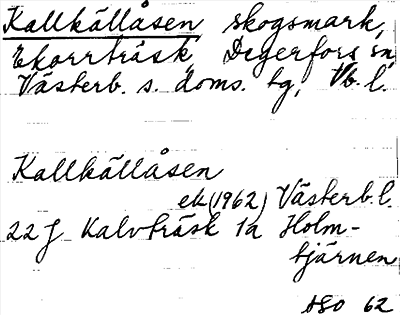 Kallkällåsen skogsmark,
Ekorrträsk, Degerfors sn
Västerb. s. doms. tg, Vb. l.
Kallkällåsen
ek (1962) Västerb. l.
22 J Kalvträsk 1a Holm-
tjärnen
62